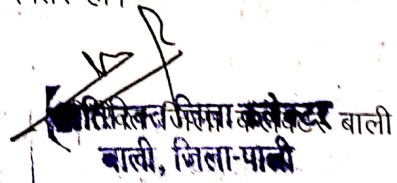 अतिरिक्त जिला कलेक्टर बाली
बाली, जिला-पाली